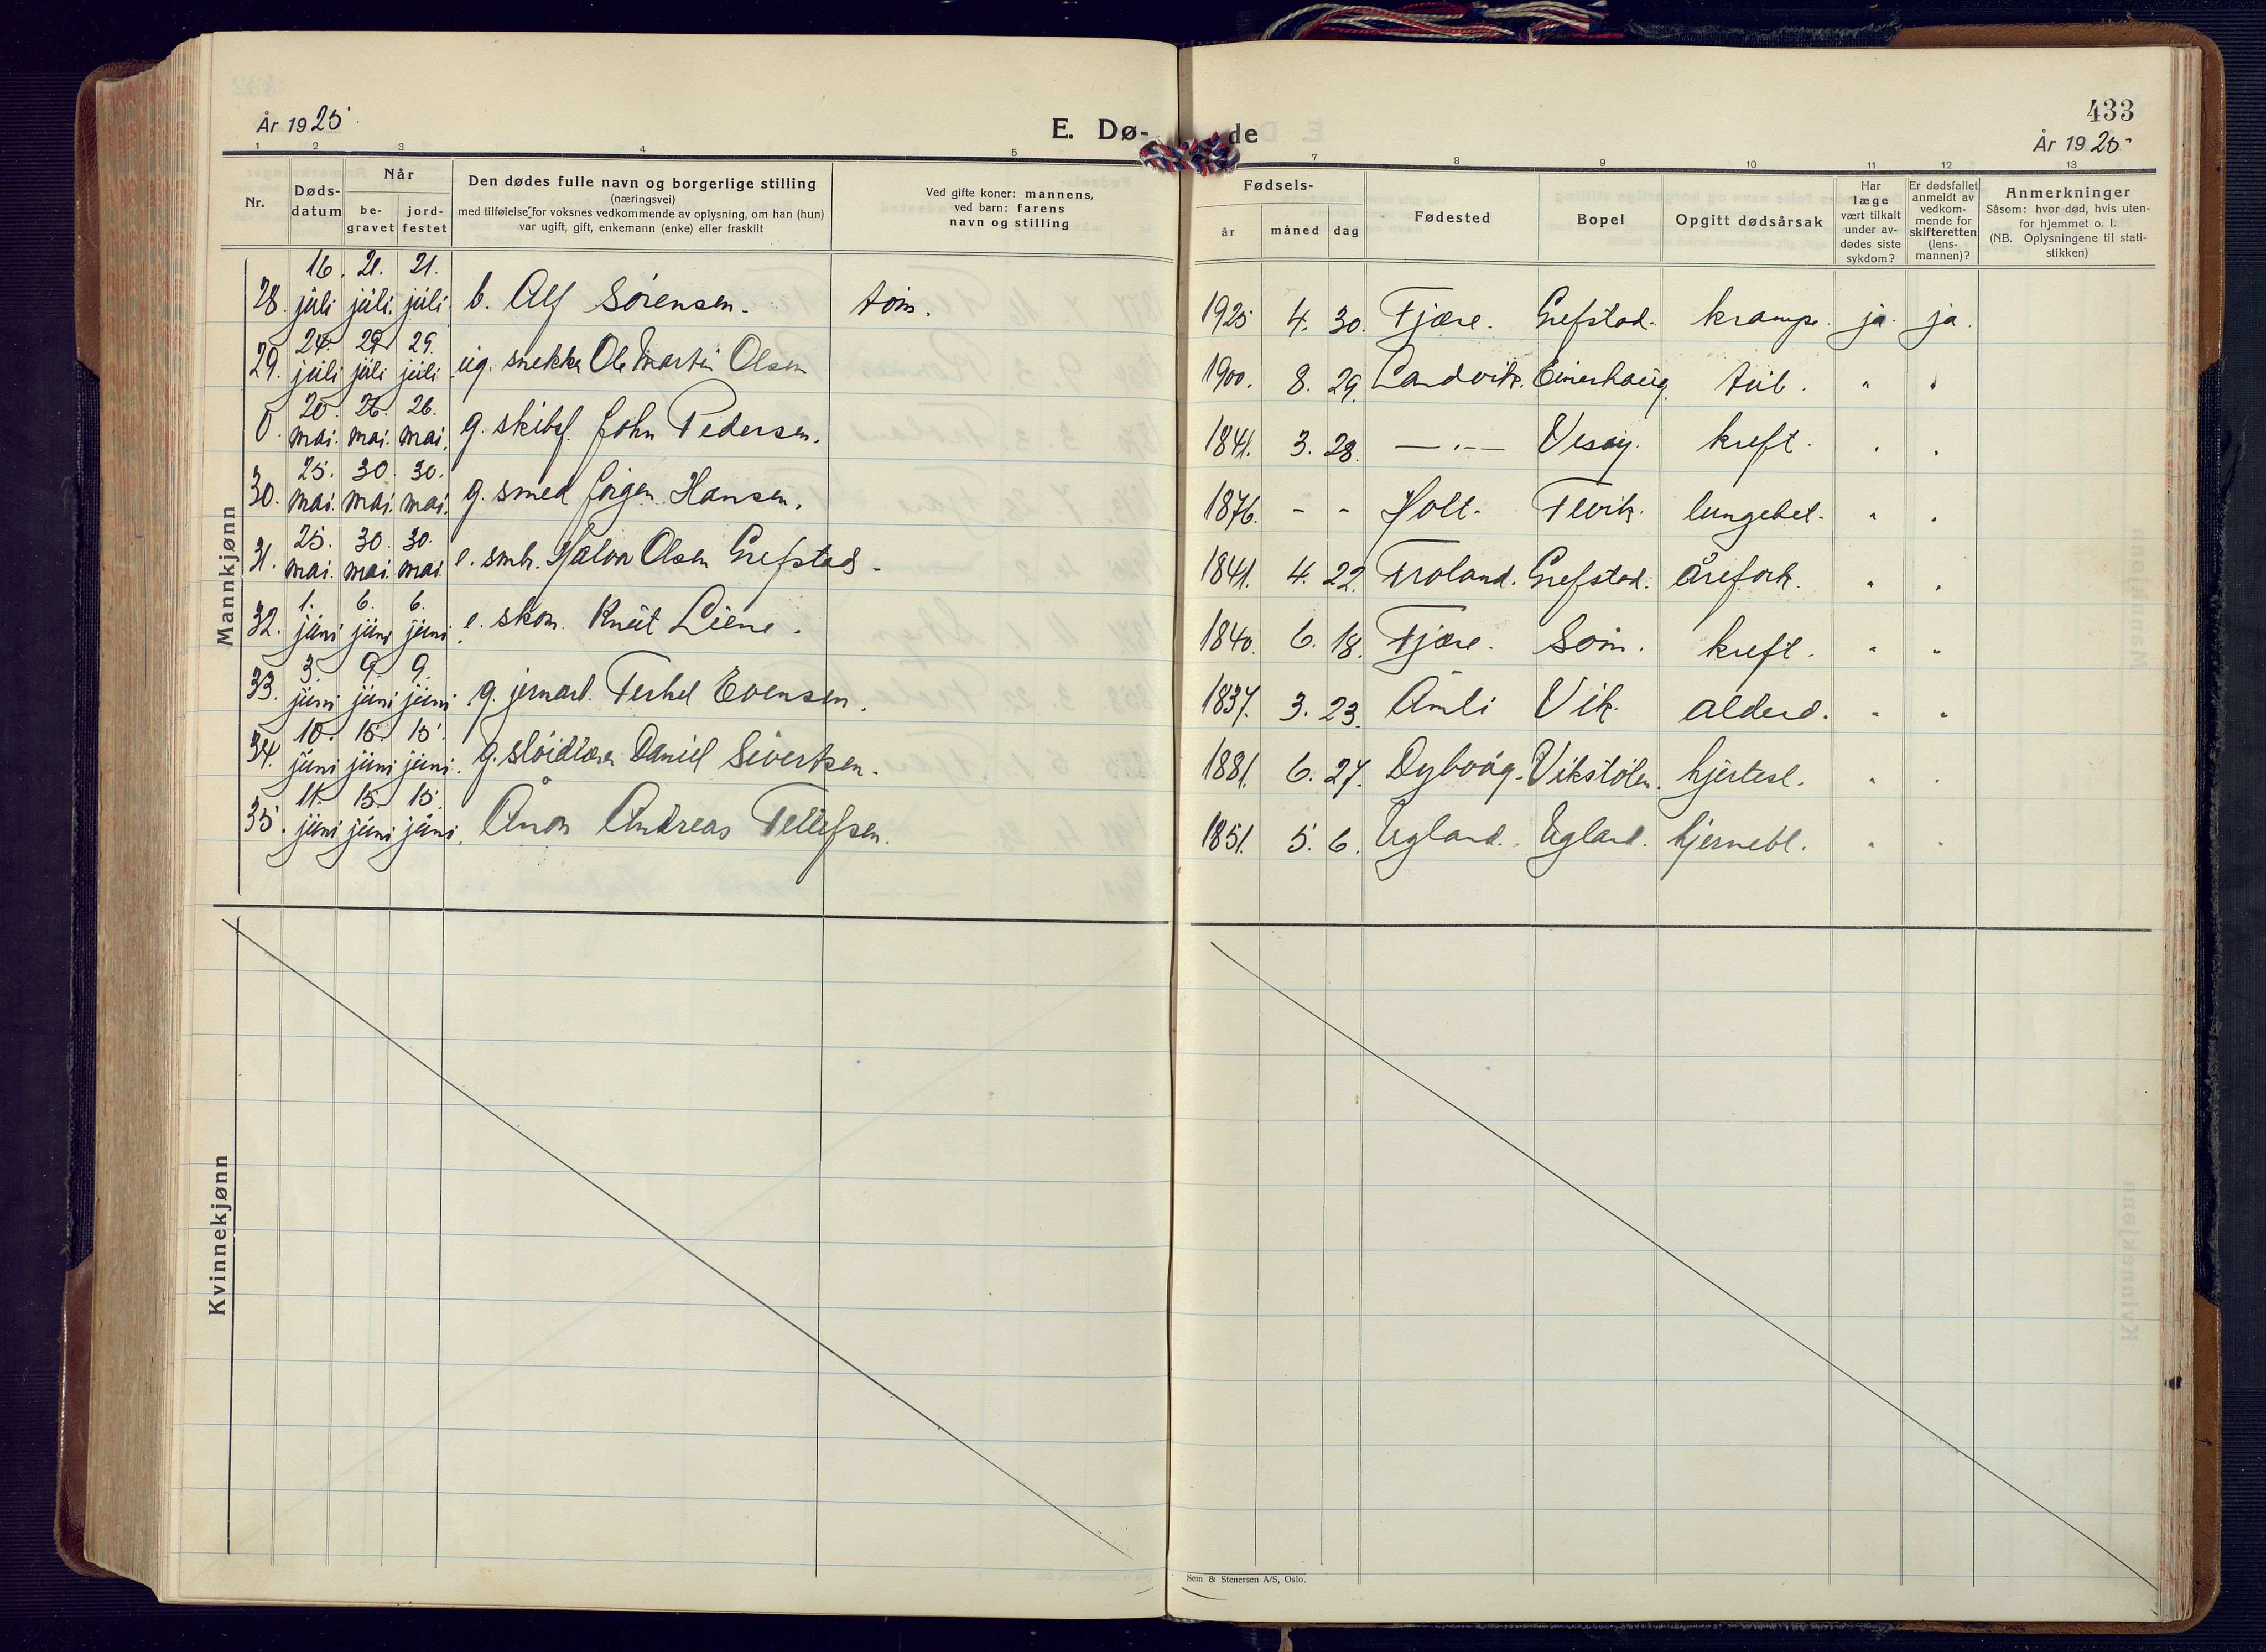 433
År 1925. E. Dø- de År 1925.
1 2 3 4 5 7 8 9 10 11 12 13
Nr. Døds-datum Når be-gravet jord-festet Den dødes fulle navn og borgerlige stilling (næringsvei) med tilføielse for voksnes vedkommende av oplysning, om han (hun) var ugift, gift, enkemann (enke) eller fraskilt Ved gifte koner: mannens, ved barn: farens navn og stilling Fødsels- år måned dag Fødested Bopel Opgitt dødsårsak Har læge vært tilkalt under av-dødes siste sykdom? Er dødsfallet anmeldt av vedkom-mende for skifteretten (lens-mannen)? Anmerkninger Såsom: hvor død, hvis uten-for hjemmet o. l. (NB. Oplysningene til stati-stikken)
Mannkjønn
28. 16. juli 21. juli. 21. juli. b. Alf Sørensen. 1925 4. 30. Fjære. Grefstad. krampe. ja. ja.
29. 24. juli 29 juli 29. juli ug. snekker Ole Martin Olsen 1900. 8. 29. Landvik. tub. " "
0. 20. mai. 26. mai. 26. mai. g. skibsf. John Pedersen. 1841. 3. 28. —"— Vesøy. kreft. " "
30. 25. mai. 30. mai. 30. mai. g. smed Jørgen Hansen. 1876. - - Holt. Fevik. lungebet. " "
31. 25. mai. 30. mai. 30. mai. e. smbr. Halvor Olsen Grefstad. 1841. 4. 22. Froland. Grefstad. årefork. " "
32. 1. juni 6. juni 6. juni e. skom. Knut Liene. 1840. 6. 18. Fjære. Søm. kreft. " "
33. 3. juni 9. juni 9. juni. g. jernarb. Terkel Evensen. 1837. 3. 23. Åmli Vik. alderd. " "
34. 10. juni 15. juni 15. juni. g. sløidlærer Daniel Sivertsen. 1881. 6. 27. Dybvåg. Vikstølen. hjertesl. " "
35. 11. juni 15. juni 15. juni. Anon Andreas Tellefsen. 1851. 5. 6. Egland. Egland. hjernebl. " "
Kvinnekjønn
Sem & Stenersen A/S, Oslo.